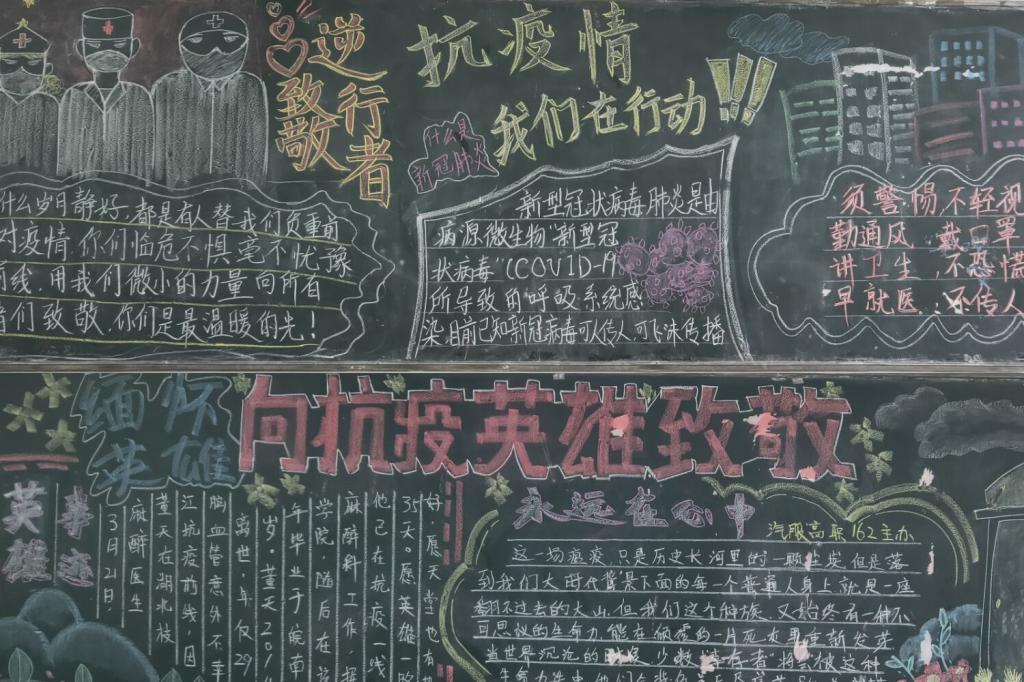 致敬
逆行者
抗疫情
我们在行动!!!
什么是
新冠肺炎
什么岁月静好,都是有人替我们负重前
对疫情你们临危不惧毫不忧豫
前线,用我们微小的力量向所有
者们致敬,你们是最温暖的先!
新型冠状病毒肺炎是由
病源微生物"新型冠
状病毒"(COVID-19
所导致的呼吸系统感
染目前已知新冠病毒可人传人可飞沫传播
须警惕不轻视
勤通风,戴口罩
讲卫生,不恐慌
早就医,不传人
缅怀
英雄
向抗疫英雄致敬
英雄
事迹
3月21日
麻醉医生
董天在湖北枝
江抗疫前线,因
脑血管意外不幸
离世,年仅29
岁。董天201
年毕业于皖南
学院,随后在
麻醉科工作,
他已在抗疫一线
35天。愿英雄一
好,愿天堂也有
永远在心中
汽服高职162主办
这一场瘟疫只是历史长河里的一颗尘埃但是落
到我们大时代背景下面的每一个普通人身上就是一座
翻不过去的大山,但我们这个种族又始终有一种不
可思议的生命力,能在倾虚的一片死灰里重新发芽
当世界沉沦的时候,少数"幸存者"将会被这种